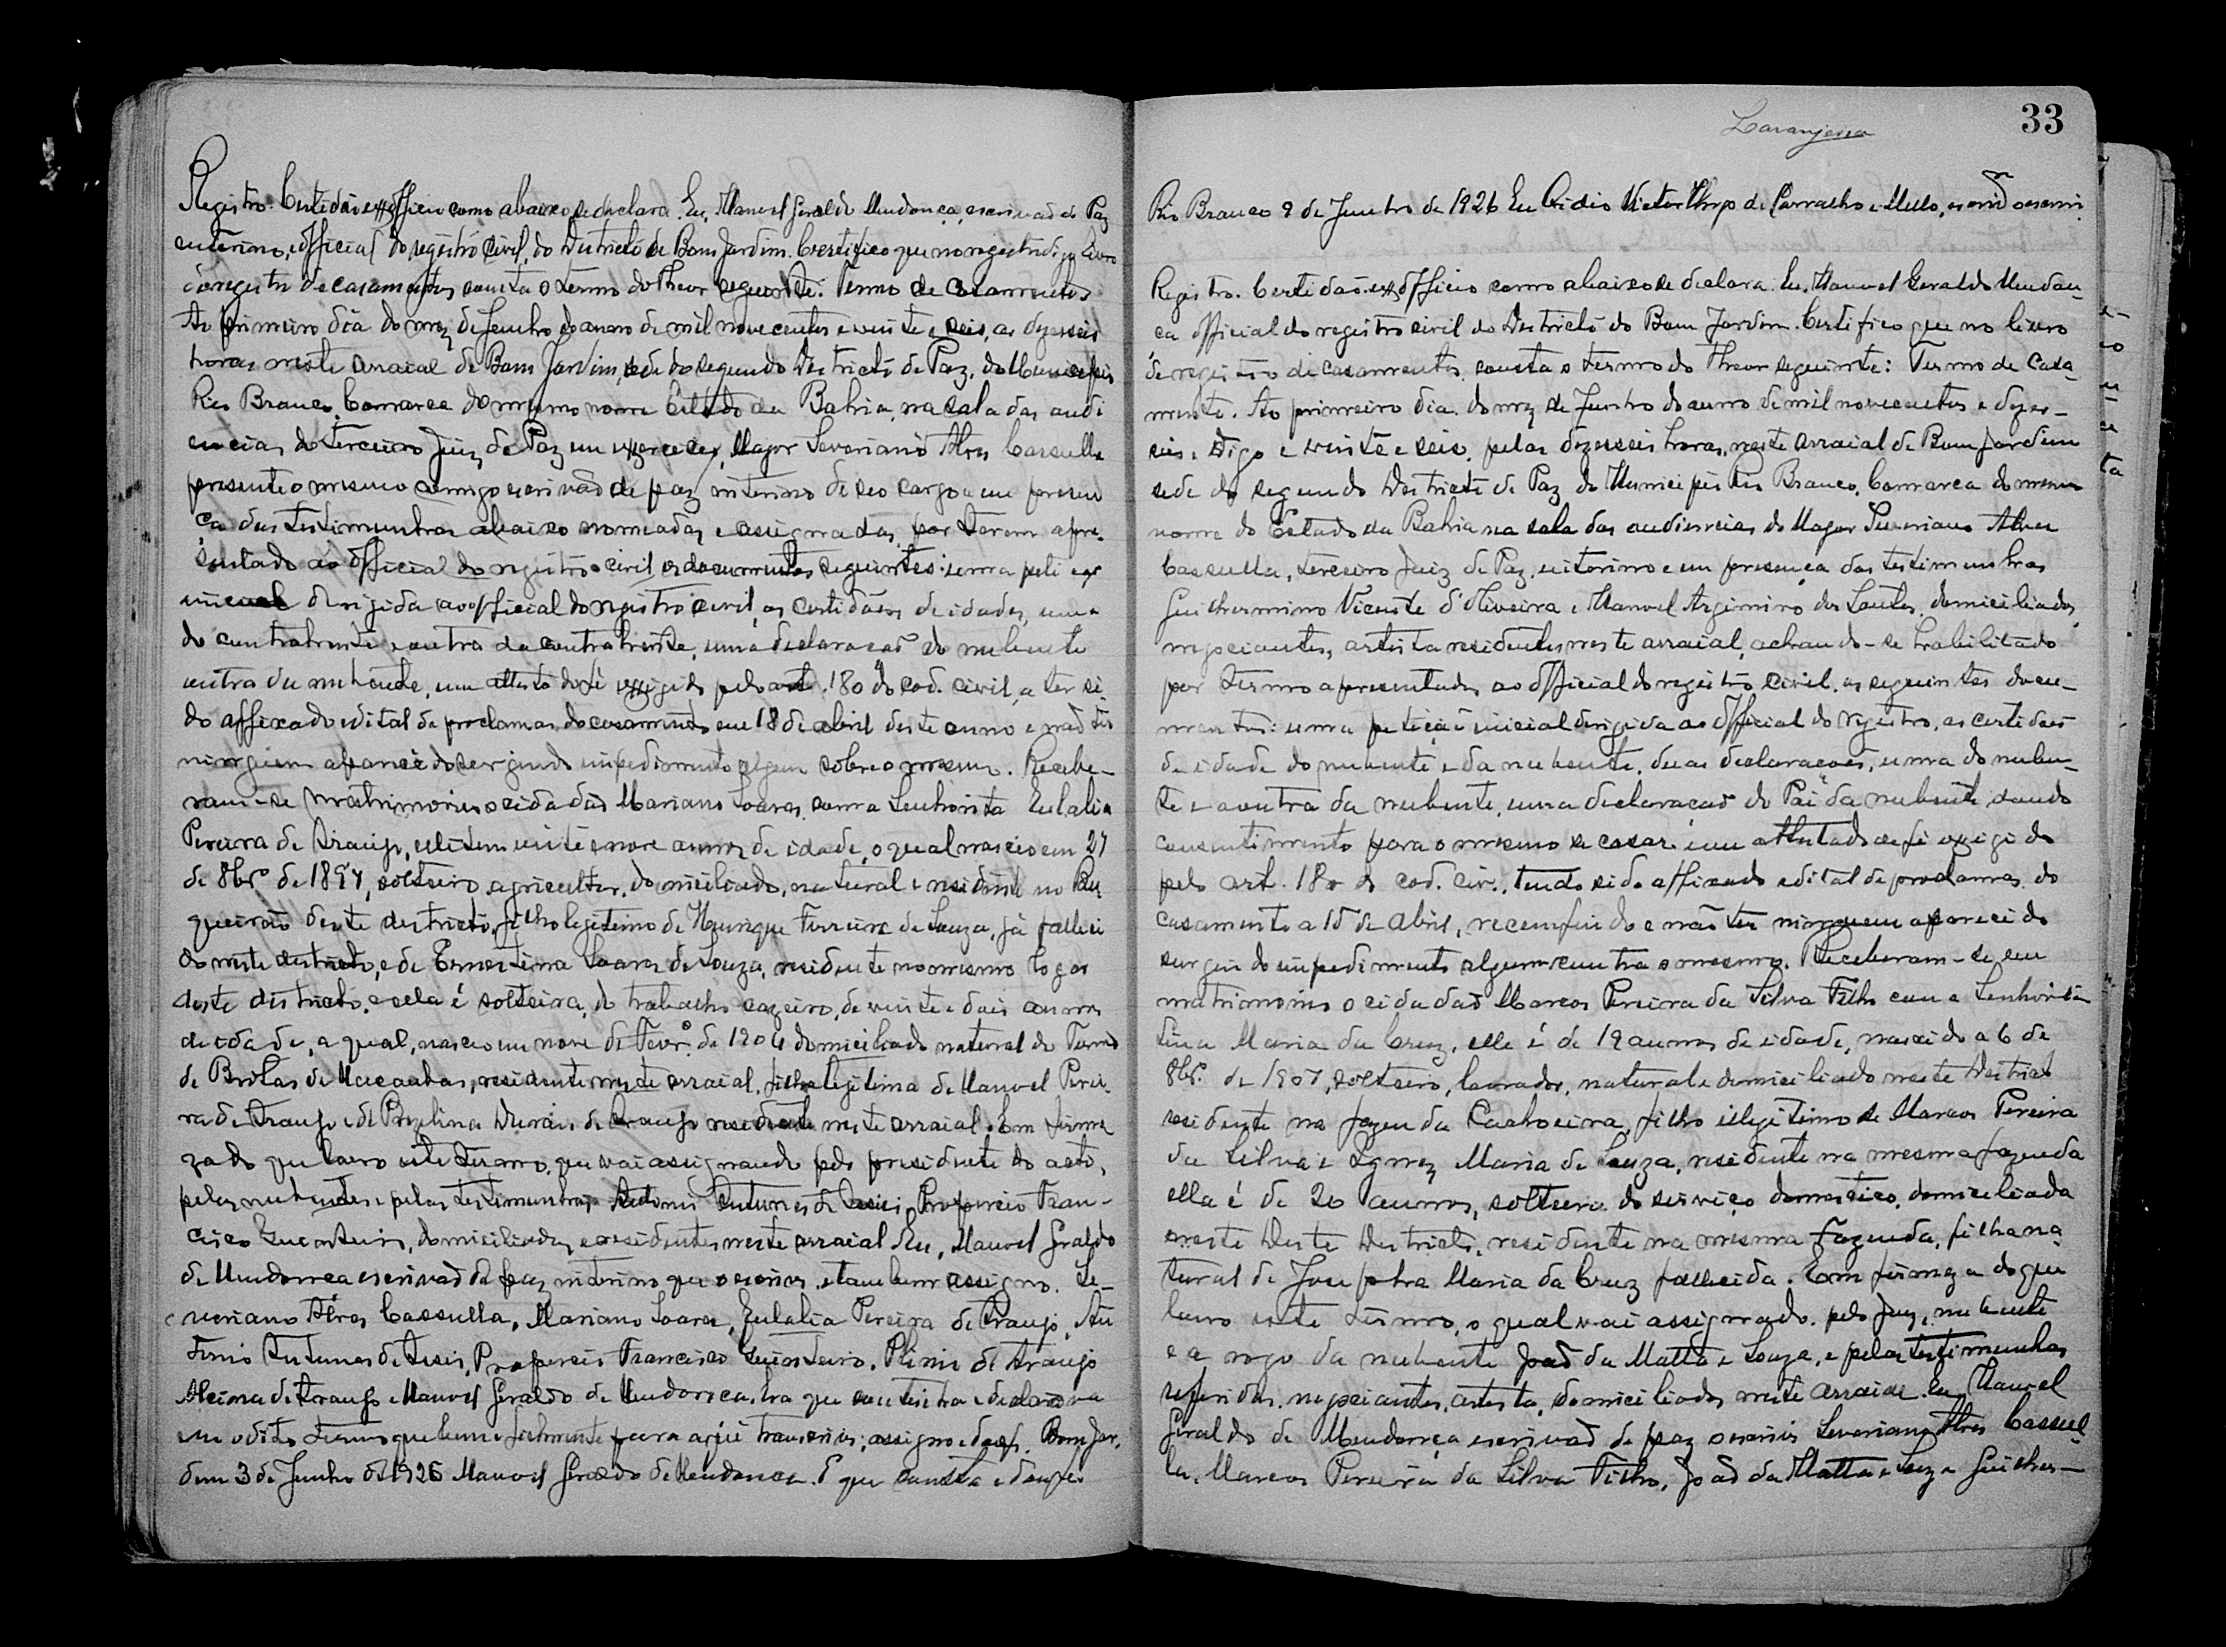 Registro. Certidão ex-officio como abaixo se declara. Eu, Manoel Geraldo Mendonça, escrivão de Paz
interino, official do registro civil, do Districto de Bom Jardim. Certifico que no registro digo livro
de registro de casamentos consta o termo do theor seguinte: Termo de Casamentos
Ao primeiro dia do mez de Junho do anno de mil novecentos e vinte e seis, as dezesseis
horas neste arraial de Bom Jardim, séde do segundo Districto de Paz, do Municipio
Rio Branco, Comarca do mesmo nome Estado da Bahia, na sala das audi
encias do terceiro Juiz de Paz em exercicio, Major Severiano Alves Cassulla
presente o mesmo comigo escrivão de paz interino de seo cargo e em presen
ça das testimunhas abaixo nomeadas e assignadas, por terem apre-
sentado ao official do registro civil os documentos seguintes: uma peti
inicial dirigida ao official do registro civil, as certidões de idades, uma
do contrahente e outra da contrahente, uma declaração do nubente
outra da nubente, um attestado de exigido pelo art. 180 do cod. civil, e ter si-
do affixado edital de proclamas do casamento em 18 de abril deste anno e não ter
ninguem aparecido surgindo impedimento algum sobre o mesmo. Recebe-
ram-se matrimonio o cidadão Mariano Soares, com a Senhorita Eulalia
Pereira de Araujo, elle tem vinte e nove annos de idade, o qual nasceo em 27
de 8brº de 1897, solteiro, agricultor, domiciliado, natural e residente no Bu
queirão deste districto, filho legitimo de Henrique Ferreira de Souza, já falleci
do neste districto, e de Ernestina Soares de Souza, residente no mesmo logar
deste districto. e ela é solteira, de trabalho cazeiro, de vinte e dois annos
de idade, a qual, nasceo em nove de Fevrº de 1904 domiciliada natural do Termo
de Brotas de Macaubas, residente neste arraial, filha legitima de Manoel Perei-
ra de Araujo e de Durães de Araujo residente neste arraial. Em firme
za do que lavro este termo, que vai assignando pelo presidente do acto,
pelos nubentes e pelas testimunhas Antonio Antunes de Assis, Profircio Fran-
cisco, domiciliados e residentes neste arraial. Eu, Manoel Geraldo
de Mendonça escrivão de paz interino que o escrevi, e tambem assigno. Se-
veriano Alves Cassulla, Mariano Soares, Eulalia Pereira de Araujo, An
tonio Antunes de Assis, Profircio Francisco. Plinio de Araujo
Alcina de Araujo e Manoel Geraldo de Mendonça. Era que continha e declarava
em o dito termo que bem e fielmente para aqui transcrevi; assigno e dou fé. Bom Jar-
dim 3 de Junho de 1926 Manoel Geraldo de Mendonça. É que consta e dou fé.
Laranjeira
33
Rio Branco 9 de Junho de 1926 Eu Ovidio Victor Hugo de Carvalho e Mello, o escrevi.
Registro. Certidão ex-officio como abaixo se declara. Eu, Manoel Geraldo Mendon-
ça official do registro civil do Districto do Bom Jardim. Certifico que no livro
de registro de casamentos, consta o termo do Theor seguinte: Termo de Casa-
mento. Ao primeiro dia do mez de Junho do anno de mil novecentos e dezes-
seis, digo e vinte e seis, pelas dezesseis horas, neste arraial de Bom Jardim
séde do segundo Districto de Paz do Municipio Rio Branco, Comarca do mesmo
nome do Estado da Bahia na sala das audiencias do Major Severiano Alves
Cassulla, terceiro Juiz de Paz, interino e em presença das testimunhas
Guilhermino Vicente d'Oliveira e Manoel Argimiro dos Santos, domiciliados,
negociantes, artista residentes neste arraial, achando-se habilitado
por termo apresentados ao official do registro civil, os seguintes docu-
mentos: uma petição inicial dirigida ao official do registro, as certidões
de idade do nubente e da nubente, duas declarações, uma do nuben-
te e a outra da nubente, uma declaração do Pai da nubente, dando
consentimento para o mesmo se casar, e um attestado de fé exigido
pelo art. 180 do cod. civ., tendo sido affixado edital de proclamas do
casamento a 15 de Abril, recemfindo e não ter ninguem aparecido
surgindo impedimento algum contra o mesmo. Receberam-se em
matrimonio o cidadão Marcos Pereira da Silva Filho com a Senhorita
Maria da Cruz, elle é de 19 annos de idade, nascido a 6 de
8brº de 1907, solteiro, lavrador, natural e domiciliado neste Districto
residente na fazenda Cachoeira, filho illegitimo de Marcos Pereira
da Silva e Ignez Maria de Souza, residente na mesma fazenda
ella é de 20 annos, solteira, do serviço domestico, domiciliada
neste Deste Districto, residente na mesma Fazenda, filha na-
tural de Josepha Maria da Cruz fallecida. Em firmeza do que
lavro este termo, o qual vai assignado, pelo Juiz, nubente
e a rogo da nubente João da Matta e Souza, e pelas testimunhas
referidas, negociantes, artista, domiciliados neste arraial. Eu, Manoel
Geraldo de Mendonça escrivão de paz o escrevi Severiano Alves Cassul-
la. Marcos Pereira da Silva Filho, João da Matta e Souza Guilher-